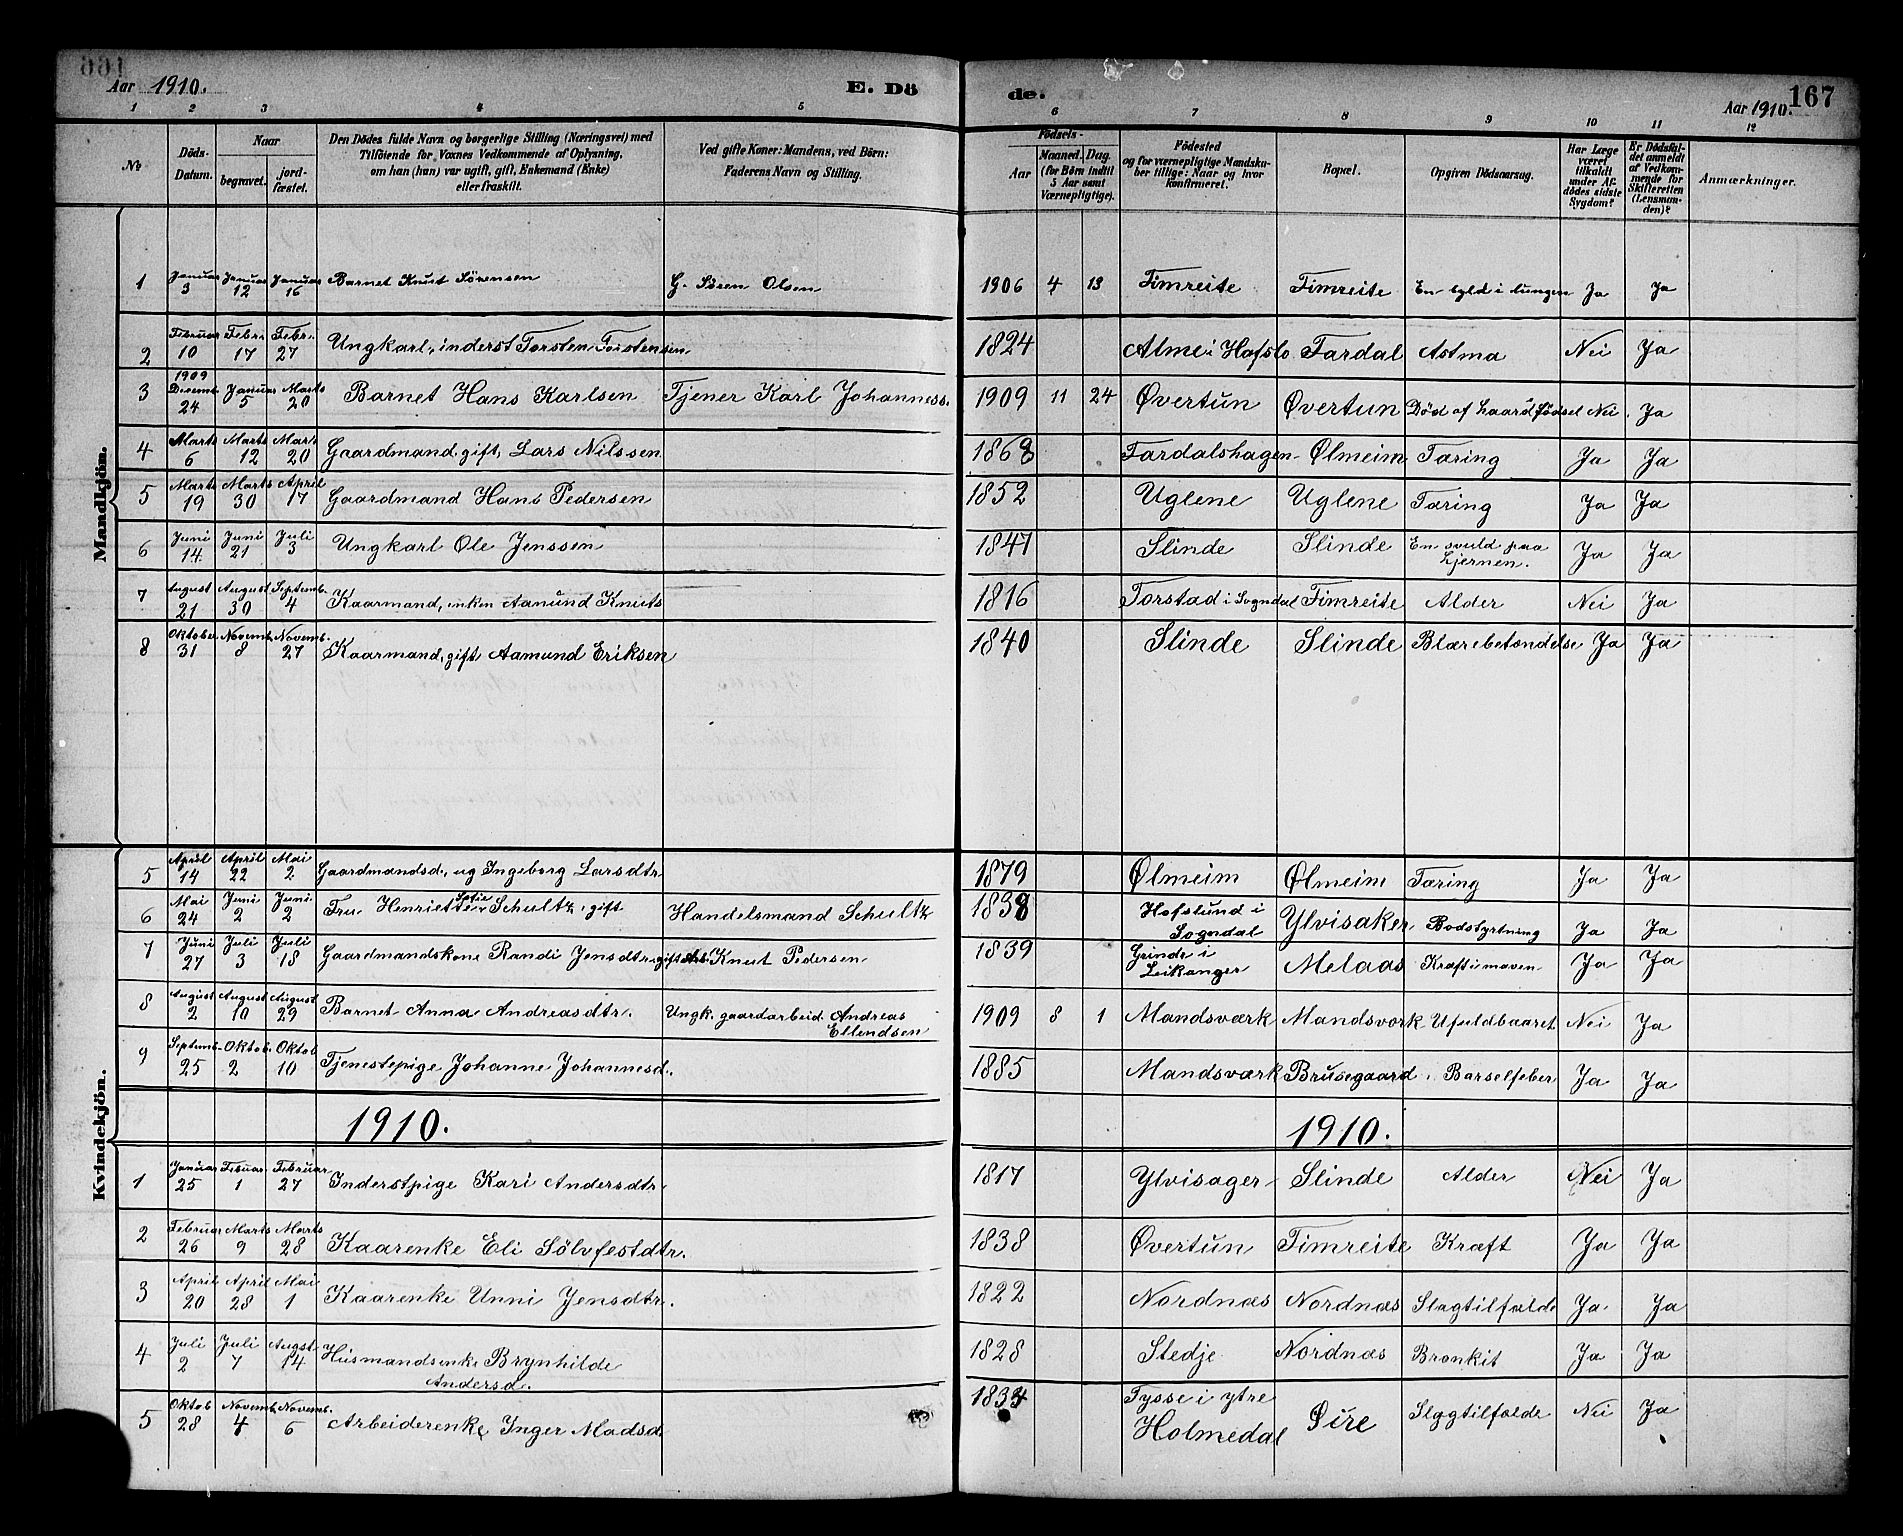 Aar 1910.
E. Dö
de.
Aar 1910.
167
1 2 3 4 5 6 7 8 9 10 11 12
№
Döds-Datum.
Naar
begravet.
jord-fæstet.
Den Dödes fulde Navn og borgerlige Stilling (Næringsvei) med
Tilföiende for Voxnes Vedkommende af Oplysning,
om han (hun) var ugift, gift, Enkemand (Enke)
eller fraskilt.
Ved gifte Koner: Mandens, ved Börn:
Faderens Navn og Stilling.
Födsels-
Aar
Maaned. Dag.
(for Börn indtil
5 Aar samt
Værnepligtige).
Födested
og for værnepligtige Mandska-
ber tillige: Naar og hvor
konfirmeret.
Bopæl.
Opgiven Dödsaarsag.
Har Læge
været
tilkaldt
under Af-
dödes sidste
Sygdom?
Er Dödsfal-
det anmeldt
af Vedkom-
mende for
Skifteretten
(Lensman-
den)?
Anmærkninger.
Mandkjön.
1 Januar 3 Januar 12 Januar 16 Barnet Knut Sörensen G. Sören Olsen 1906 4 13 Fimreite Fimreite En byld i lungen Ja Ja
2 Februar 10 Febr. 17 Febr. 27 Ungkarl, inderst Torsten Torstensen 1824 Alme i Hafslo Fardal Astma Nei Ja
3 1909 Decemb. 24 Januar 5 Marts 20 Barnet Hans Karlsen Tjener Karl Johanness. 1909 11 24 Øvertun Øvertun Död af haard Födsel Nei. Ja
4 Marts 6 Marts 12 Mar. 20 Gaardmand, gift, Lars Nilssen 1868 Fardalshagen Ølmeim Tæring Ja Ja
5 Marts 19 Marts 30 April 17 Gaardmand Hans Pedersen 1852 Uglene Uglene Tæring Ja Ja
6 Juni 14 Juni 21 Juli 3 Ungkarl Ole Jenssen 1847 Slinde Slinde En svuld paa hjernen. Ja Ja
7 August 21 August 30 Septemb. 4 Kaarmand, enkem Aamund Knuts 1816 Torstad i Sogndal Fimreite Alder Nei Ja
8 Oktober 31 Novemb. 8 Novemb. 27 Kaarmand, gift Aamund Eriksen 1840 Slinde Slinde Blærebetændelse Ja Ja
Kvindekjön.
5 April 14 April 22 Mai 2 Gaardmandsd., ug Ingeborg Larsdtr 1879 Ølmeim Ølmeim Tæring Ja Ja
6 Mai 24 Juni 2 Juni 2 Fru Henriette Sofie Schultz, gift Handelsmand Schultz 1838 Hofslund i Sogndal Ylvisaker Bodstyrtning Ja Ja
7 Juni 27 Juli 3 Juli 18 Gaardmandskone Randi Jensdtr gift Knut Pedersen 1839 Grinde i Leikanger Melaas Kræft i maven Ja Ja
8 August 2 August 10 August 29 Barnet Anna Andreasdtr. Ungk. gaardarbeid. Andreas Ellendsen 1909 8 1 Mandsværk Mandsverk Ufuldbaaret Nei Ja
9 Septemb. 25 Oktob. 2 Oktob 10 Tjenestepige Johanne Johannesd. 1885 Mandsværk Brusegaard Barselfeber Ja Ja
1910. 1910.
1 Januar 25 Februar 1 Februar 27 Inderstpige Kari Andersdtr 1817 Ylvisager Slinde Alder Nei Ja
2 Februar 26 Marts 9 Marts 28 Kaarenke Eli Sölvfestdtr. 1838 Øvertun Fimreite Kræft Ja Ja
3 April 20 April 28 Mai 1 Kaarenke Unni Jensdtr. 1822 Nordnæs Nordnæs Slagtilfælde Ja. Ja
4 Juli 2 Juli 7 Augst 14 Husmandsenke Brynhilde Andersd. 1828 Stedje Nordnæs Bronkit Ja Ja
5 Oktob 28 Novemb. 4 Novemb. 6 Arbeiderenke Inger Madsd 1834 Tysse i ytre Holmedal Øire Slagtilfælde Nei Ja